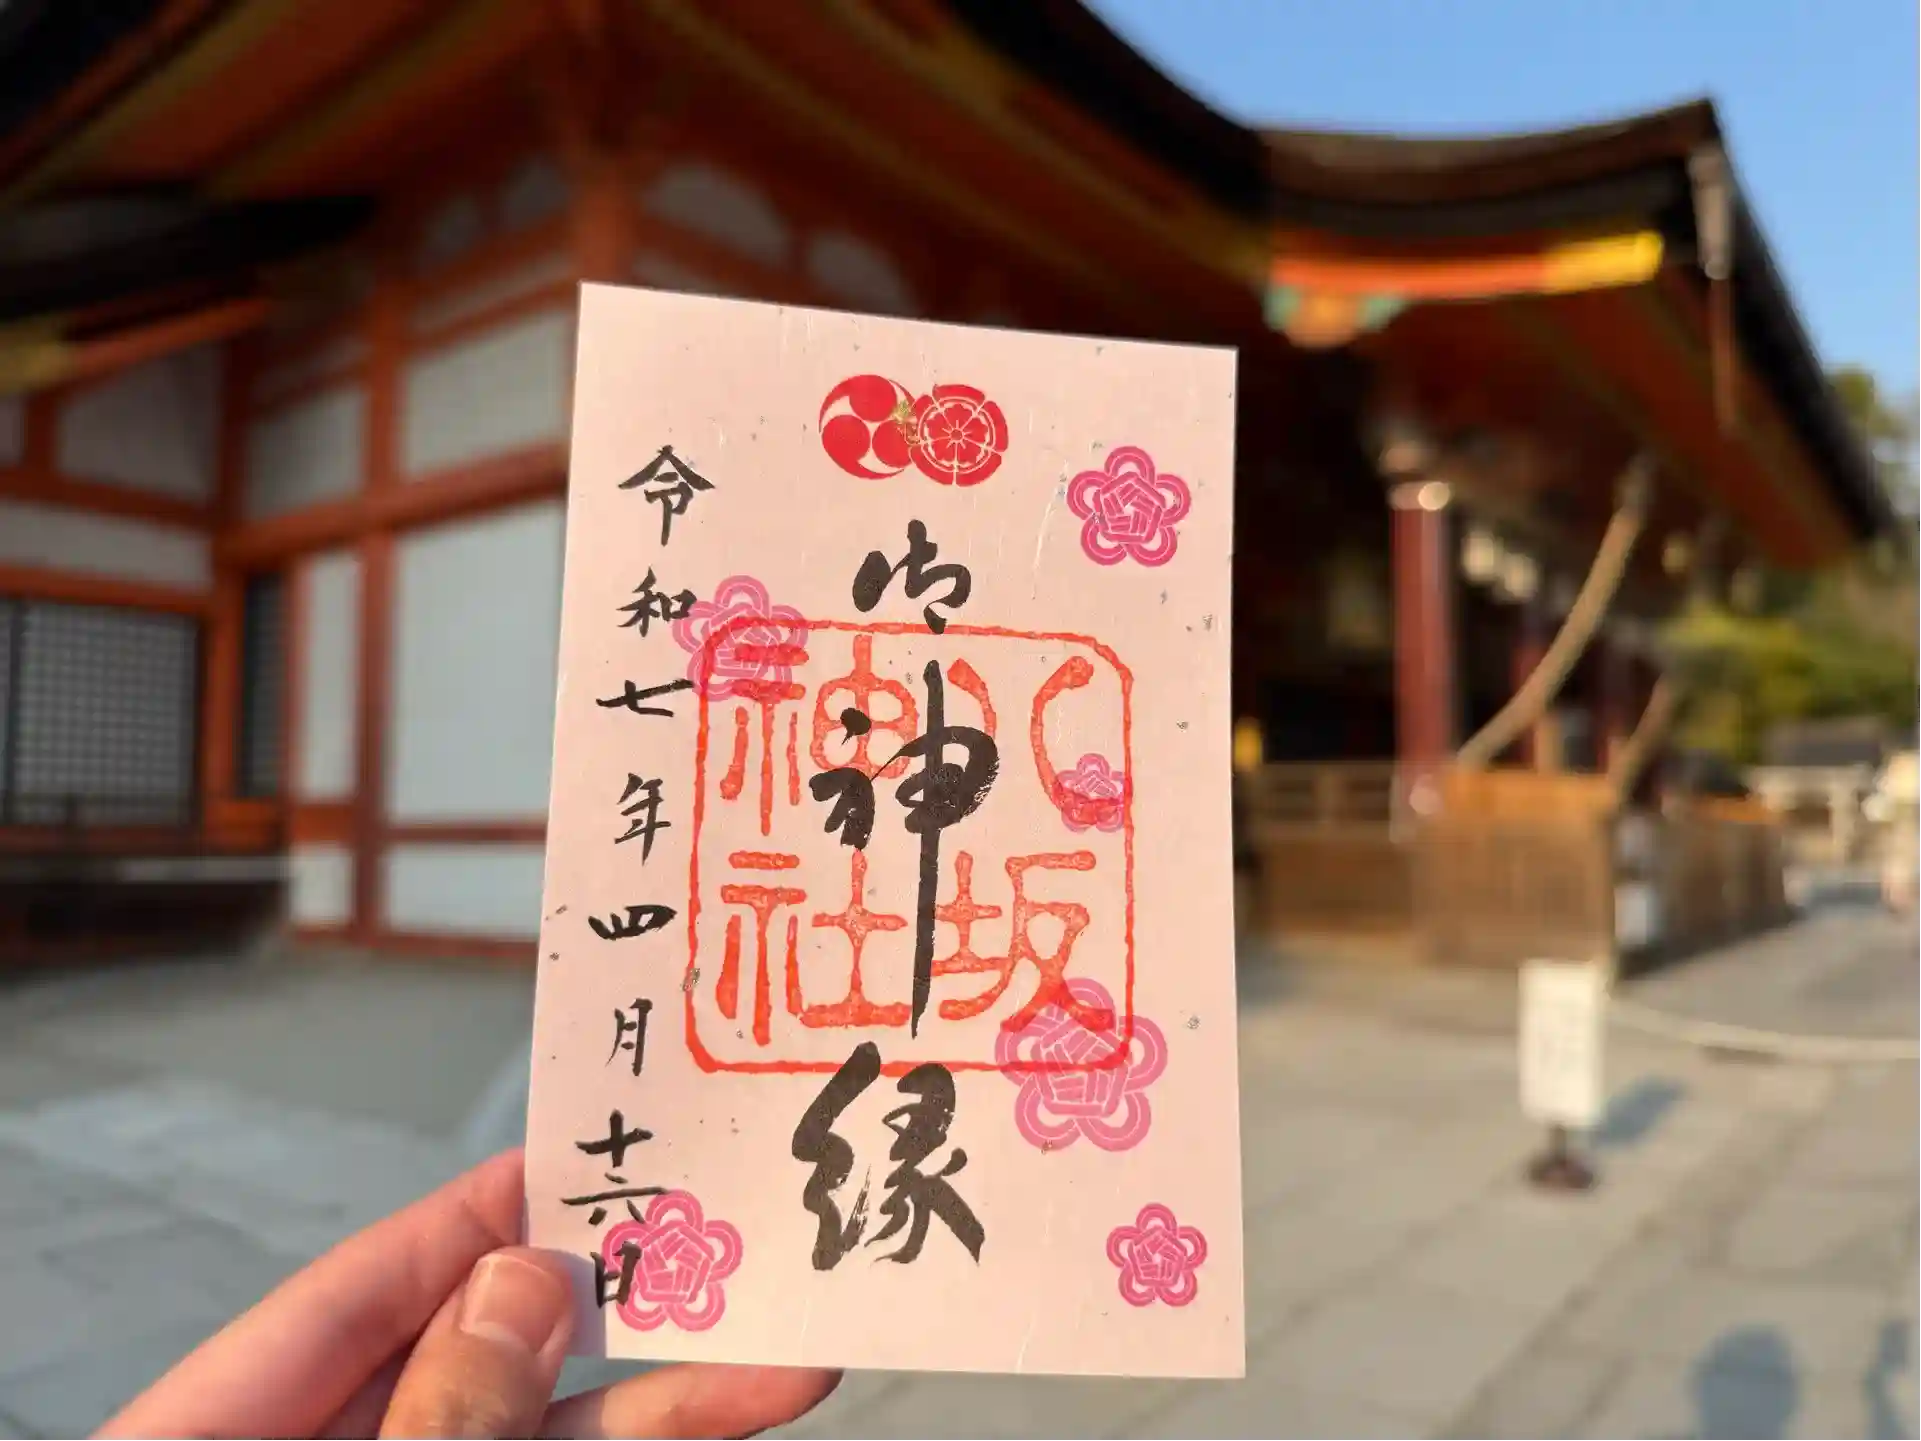 御神縁
八坂
神社
令和七年四月十六日